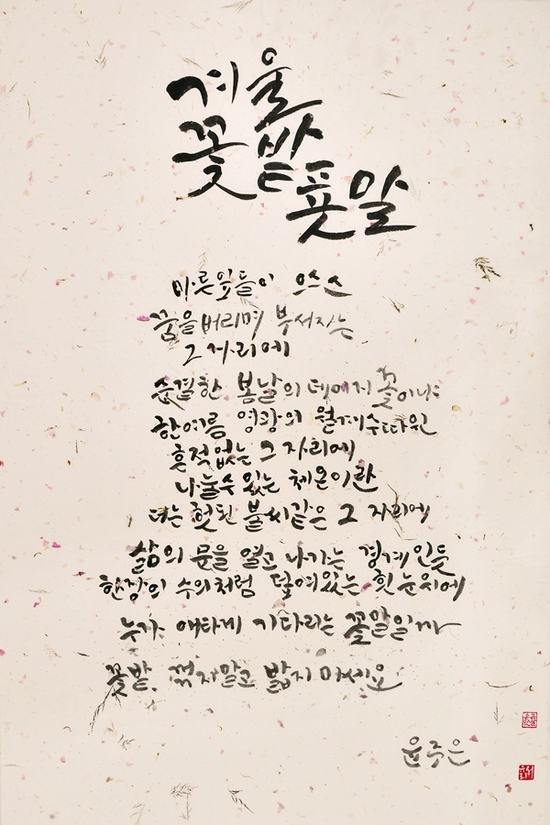 겨울
꽃밭
푯말
마른잎들이 으스스
꿈을버리며 부서지는
그 자리에
순결한 봄날의 데이지 꽃이나
한여름 영광의 월계수따윈
흔적없는 그 자리에
나눌수 있는 체온이란
더는 헛된 불씨같은 그 자리에
삶의 문을 열고 나가는 경계인듯
한장의 수의처럼 덮여있는 흰 눈위에
누가 애타게 기다리는 꽃말일까
꽃밭, 꺾지말고 밟지 마세요
윤주은